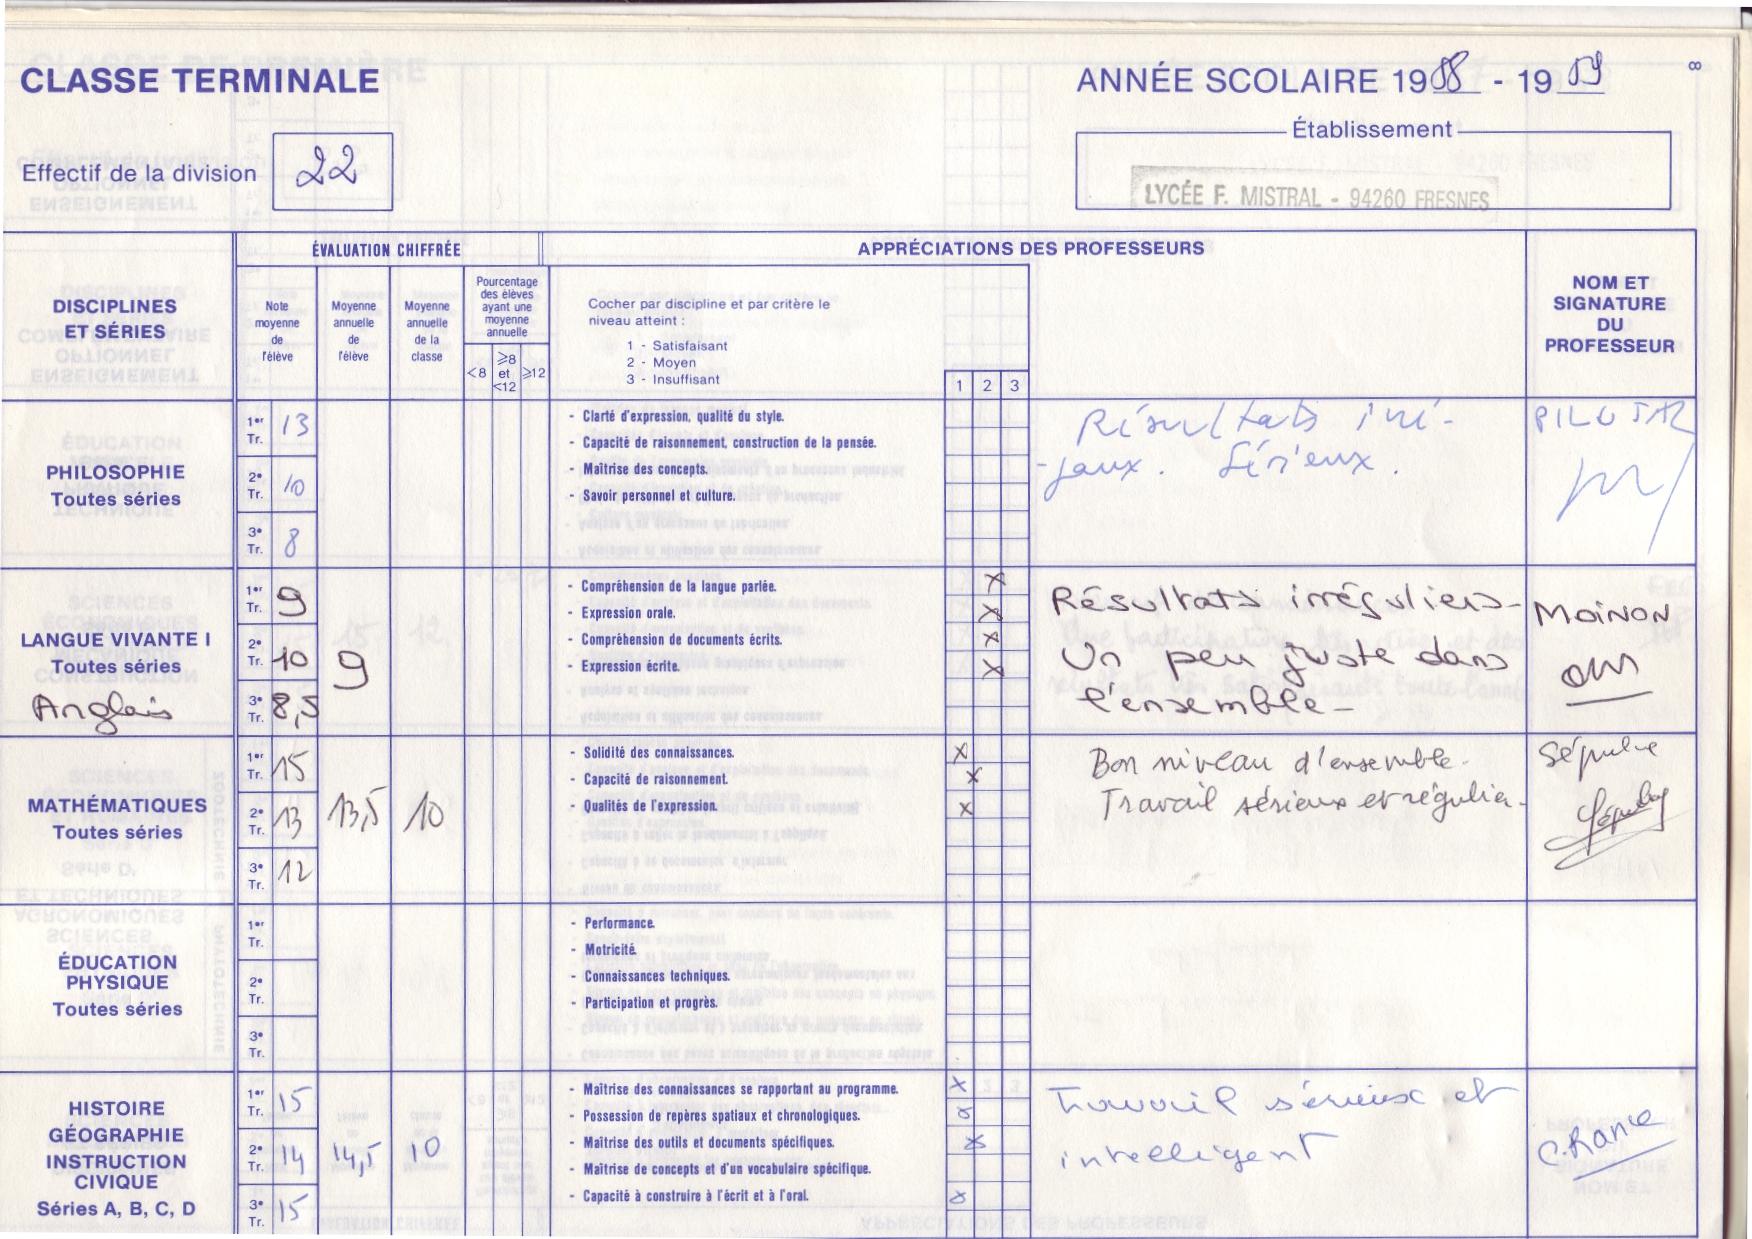 CLASSE TERMINALE
ANNÉE SCOLAIRE 1988 - 1989
8
Effectif de la division 22
Établissement
LYCÉE F. MISTRAL - 94260 FRESNES
DISCIPLINES ET SÉRIES
ÉVALUATION CHIFFRÉE
APPRÉCIATIONS DES PROFESSEURS
NOM ET SIGNATURE DU PROFESSEUR
Note moyenne de l'élève
Moyenne annuelle de l'élève
Moyenne annuelle de la classe
Pourcentage des élèves ayant une moyenne annuelle
<8
≥8 et <12
≥12
Cocher par discipline et par critère le
niveau atteint :
1 - Satisfaisant
2 - Moyen
3 - Insuffisant
1 2 3
PHILOSOPHIE
Toutes séries
1er Tr. 13
2e Tr. 10
3e Tr. 8
- Clarté d'expression, qualité du style.
- Capacité de raisonnement, construction de la pensée.
- Maîtrise des concepts.
- Savoir personnel et culture.
Résultats iné-
-gaux. Sérieux.
LANGUE VIVANTE I
Toutes séries
Anglais
1er Tr. 9
2e Tr. 10
3e Tr. 8,5
9
- Compréhension de la langue parlée. x
- Expression orale. x
- Compréhension de documents écrits. x
- Expression écrite. x
Résultats irréguliers-
Un peu juste dans
l'ensemble-
MOINON
MATHÉMATIQUES
Toutes séries
1er Tr. 15
2e Tr. 13
3e Tr. 12
13,5
10
- Solidité des connaissances. x
- Capacité de raisonnement. x
- Qualités de l'expression. x
Bon niveau d'ensemble.
Travail sérieux et régulier.
ÉDUCATION
PHYSIQUE
Toutes séries
1er Tr.
2e Tr.
3e Tr.
- Performance.
- Motricité.
- Connaissances techniques.
- Participation et progrès.
HISTOIRE
GÉOGRAPHIE
INSTRUCTION
CIVIQUE
Séries A, B, C, D
1er Tr. 15
2e Tr. 14
3e Tr. 15
14,5
10
- Maîtrise des connaissances se rapportant au programme. x
- Possession de repères spatiaux et chronologiques. x
- Maîtrise des outils et documents spécifiques. x
- Maîtrise de concepts et d'un vocabulaire spécifique.
- Capacité à construire à l'écrit et à l'oral. x
Travail sérieux et
intelligent